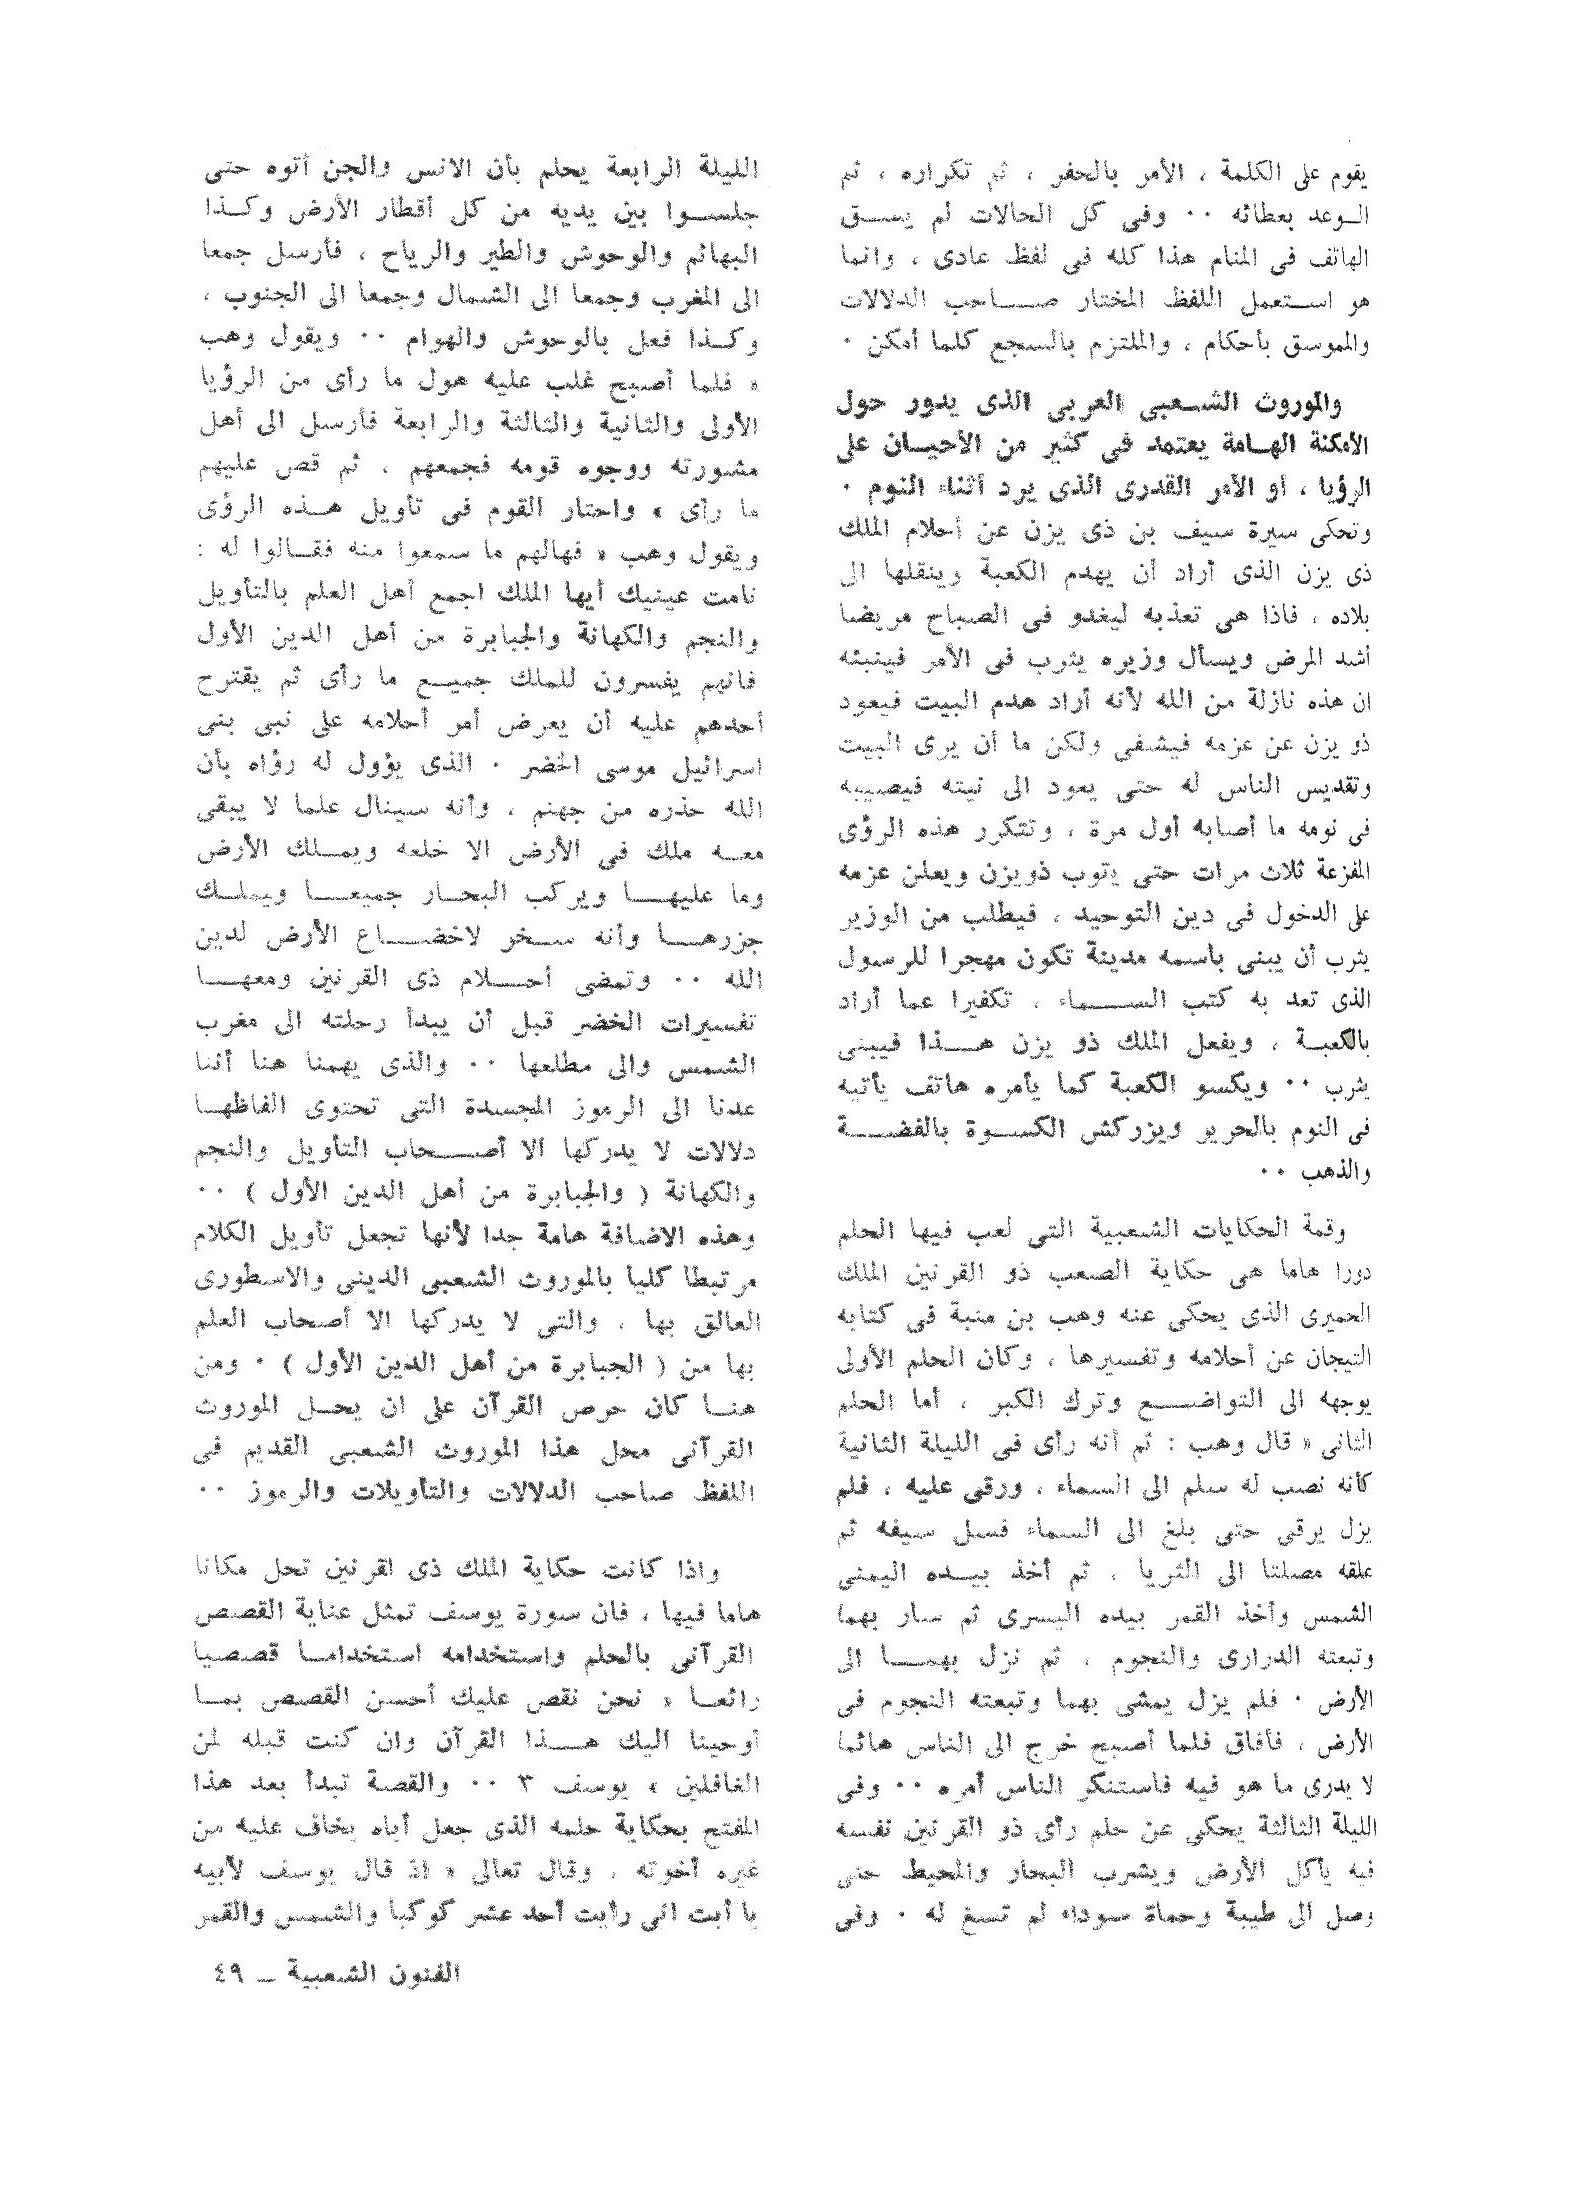 يقوم على الكلمة ، الأمر بالحفر ، ثم تكراره ، ثم
الوعد بعطائه ٠٠ وفى كل الحالات لم يسق
الهاتف فى المنام هذا كله فى لفظ عادى ، وانما
هو استعمل اللفظ المختار صاحب الدلالات
والموسق بأحكام ، والملتزم بالسجع كلما أمكن ٠
والموروث الشعبى العربى الذى يدور حول
الأمكنة الهامة يعتمد فى كثير من الأحيان على
الرؤيا ، أو الأمر القدرى الذى يرد أثناء النوم ٠
وتحكى سيرة سيف بن ذى يزن عن أحلام الملك
ذى يزن الذى أراد أن يهدم الكعبة وينقلها الى
بلاده ، فاذا هى تعذبه ليغدو فى الصباح مريضا
أشد المرض ويسأل وزيره يثرب فى الأمر فينبئه
ان هذه نازلة من الله لأنه أراد هدم البيت فيعود
ذو يزن عن عزمه فيشفى ولكن ما أن يرى البيت
وتقديس الناس له حتى يعود الى نيته فيصيبه
فى نومه ما أصابه أول مرة ، وتتكرر هذه الرؤى
المفزعة ثلاث مرات حتى يتوب ذويزن ويعلن عزمه
على الدخول فى دين التوحيد ، فيطلب من الوزير
يثرب أن يبنى باسمه مدينة تكون مهجرا للرسول
الذى تعد به كتب السماء ، تكفيرا عما أراد
بالكعبة ، ويفعل الملك ذو يزن هذا فيبنى
يثرب ٠٠ ويكسو الكعبة كما يأمره هاتف يأتيه
فى النوم بالحرير ويزركش الكسوة بالفضة
والذهب ٠٠
وقمة الحكايات الشعبية التى لعب فيها الحلم
دورا هاما هى حكاية الصعب ذو القرنين الملك
الحميرى الذى يحكى عنه وهب بن منبة فى كتابه
التيجان عن أحلامه وتفسيرها ، وكان الحلم الأولى
يوجهه الى التواضع وترك الكبر ، أما الحلم
الثانى « قال وهب : ثم أنه رأى فى الليلة الثانية
كأنه نصب له سلم الى السماء ، ورقى عليه ، فلم
يزل يرقى حتى بلغ الى السماء فسل سيفه ثم
علقه مصلتا الى الثريا ، ثم أخذ بيده اليمنى
الشمس وأخذ القمر بيده اليسرى ثم سار بهما
وتبعته الدرارى والنجوم ، ثم نزل بهما الى
الأرض ٠ فلم يزل يمشى بهما وتبعته النجوم فى
الأرض ، فأفاق فلما أصبح خرج الى الناس هائما
لا يدرى ما هو فيه فاستنكر الناس أمره ٠٠ وفى
الليلة الثالثة يحكى عن حلم رأى ذو القرنين نفسه
فيه يأكل الأرض ويشرب البحار والمحيط حتى
وصل الى طيبة وحمأة سوداء لم تسغ له ٠ وفى
الليلة الرابعة يحلم بأن الانس والجن أتوه حتى
جلسوا بين يديه من كل أقطار الأرض وكذا
البهائم والوحوش والطير والرياح ، فأرسل جمعا
الى المغرب وجمعا الى الشمال وجمعا الى الجنوب ،
وكذا فعل بالوحوش والهوام ٠٠ ويقول وهب
« فلما أصبح غلب عليه هول ما رأى من الرؤيا
الأولى والثانية والثالثة والرابعة فأرسل الى أهل
مشورته ووجوه قومه فجمعهم ، ثم قص عليهم
ما رأى » واحتار القوم فى تأويل هذه الرؤى
ويقول وهب « فهالهم ما سمعوا منه فقالوا له :
نامت عينيك أيها الملك اجمع أهل العلم بالتأويل
والنجم والكهانة والجبابرة من أهل الدين الأول
فانهم يفسرون للملك جميع ما رأى ثم يقترح
أحدهم عليه أن يعرض أمر أحلامه على نبى بنى
اسرائيل موسى الخضر ٠ الذى يؤول له رؤاه بأن
الله حذره من جهنم ، وأنه سينال علما لا يبقى
معه ملك فى الأرض الا خلعه ويملك الأرض
وما عليها ويركب البحار جميعا ويملك
جزرها وأنه سخر لاخضاع الأرض لدين
الله ٠٠ وتمضى أحلام ذى القرنين ومعها
تفسيرات الخضر قبل أن يبدأ رحلته الى مغرب
الشمس والى مطلعها ٠٠ والذى يهمنا هنا أننا
عدنا الى الرموز المجسدة التى تحتوى الفاظها
دلالات لا يدركها الا أصحاب التأويل والنجم
والكهانة ( والجبابرة من أهل الدين الأول ) ٠٠
وهذه الاضافة هامة جدا لأنها تجعل تأويل الكلام
مرتبطا كليا بالموروث الشعبى الدينى والاسطورى
العالق بها ، والتى لا يدركها الا أصحاب العلم
بها من ( الجبابرة من أهل الدين الأول ) ٠ ومن
هنا كان حرص القرآن على ان يحل الموروث
القرآنى محل هذا الموروث الشعبى القديم فى
اللفظ صاحب الدلالات والتأويلات والرموز ٠٠
واذا كانت حكاية الملك ذى لقرنين تحل مكانا
هاما فيها ، فان سورة يوسف تمثل عناية القصص
القرآنى بالحلم واستخدامه استخداما قصصيا
رائعا « نحن نقص عليك أحسن القصص بما
أوحينا اليك هذا القرآن وان كنت قبله لمن
الغافلين » يوسف ٣ ٠٠ والقصة تبدأ بعد هذا
المفتح بحكاية حلمه الذى جعل أباه يخاف عليه من
غيره أخوته ، وقال تعالى « اذ قال يوسف لأبيه
يا أبت انى رأيت أحد عشر كوكبا والشمس والقمر
الفنون الشعبية ــ ٤٩